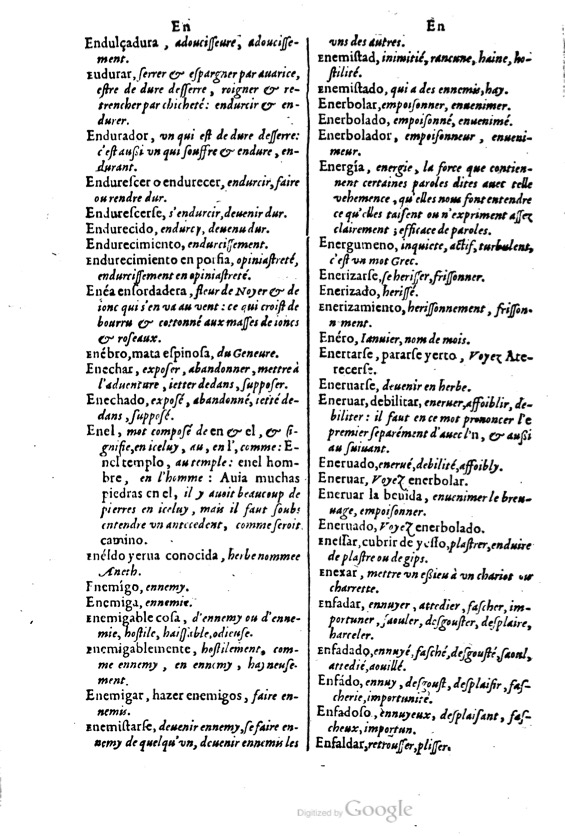 En
Endulçadura, adouciſſeure, adouciſſe-
ment.
Eudurar, ſerrer & eſpargner par auarice,
eſtre de dure deſſerre, roigner & re-
trencher par chicheté: endurcir & en-
durer.
Endurador, vn qui eſt de dure deſſerre:
c'eſt auſsi vn qui ſouffre & endure, en-
durant.
Endureſcer o endurecer, endurcir, faire
ou rendre dur.
Endureſcerſe, s'endurcir, deuenir dur.
Endurecido, endurcy, deuenu dur.
Endurecimiento, endurciſſement.
Endurecimiento en porfia, opiniaſtreté,
endurciſſement en opiniaſtreté.
Enéa enſordadera, fleur de Noyer & de
ionc qui s'en va au vent: ce qui croiſt de
bourru & cottonné aux maſſes de ioncs
& roſeaux.
Enébro, mata eſpinoſa, du Geneure.
Enechar, expoſer, abandonner, mettre à
l'aduenture, ietter dedans, ſuppoſer.
Enechado, expoſé, abandonné, ietté de-
dans, ſuppoſé.
Enel, mot compoſé de en & el, & ſi-
gnifie, en iceluy, au, en l', comme: E-
nel templo, au temple: enel hom-
bre, en l'homme: Auia muchas
piedras en el, il y auoit beaucoup de
pierres en iceluy, mais il faut ſoubs
entendre vn antecedent, comme ſeroit
camino.
Enéldo yerua conocida, herbe nommee
Aneth.
Enemígo, ennemy.
Enemiga, ennemie.
Enemigable coſa, d'ennemy ou d'enne-
mie, hoſtile, haiſſable, odieuſe.
Enemigablemente, hoſtilement, com-
me ennemy, en ennemy, hayneuſe-
ment.
Enemigar, hazer enemigos, faire en-
nemis.
Enemiſtarſe, deuenir ennemy, ſe faire en-
nemy de quelqu'vn, deuenir ennemis les
En
vns des autres.
Enemiſtad, inimitié, rancune, haine, ho-
ſtilité.
Enemiſtado, qui a des ennemis, hay.
Enerbolar, empoiſonner, enuenimer.
Enerbolado, empoiſonné, enuenimé.
Enerbolador, empoiſonneur, enueni-
meur.
Energía, energie, la force que contien-
nent certaines paroles dites auec telle
vehemence, qu'elles nous font entendre
ce qu'elles taiſent ou n'expriment aſſez
clairement; efficace de paroles.
Energumeno, inquiete, actif, turbulent,
c'eſt vn mot Grec.
Enerizarſe, ſe heriſſer, friſſonner.
Enerizado, heriſſé.
Enerizamiento, heriſſonnement, friſſon-
nement.
Enéro, Ianuier, nom de mois.
Enertarſe, pararſe yerto, Voyez Ate-
recerſe.
Eneruarſe, deuenir en herbe.
Eneruar, debilitar, eneruer, affoiblir, de-
biliter: il faut en ce mot prononcer l'e
premier ſeparément d'auec l'n, & auſsi
au ſuiuant.
Eneruado, enerué, debilité, affoibly.
Eneruar, Voyez enerbolar.
Eneruar la beuida, enuenimer le breu-
uage, empoiſonner.
Eneruado, Voyez enerbolado.
Eneſſar, cubrir de yeſſo, plaſtrer, enduire
de plaſtre ou de gips.
Enexar, mettre vn eſsieu à vn chariot ou
charrette.
Enfadar, ennuyer, attedier, faſcher, im-
portuner, ſaouler, deſgouſter, deſplaire,
harceler.
Enfadado, ennuyé, faſché, deſgouſté, ſaoul,
attedié, aouillé.
Enfádo, ennuy, deſgouſt, deſplaiſir, faſ-
cherie, importunité.
Enfadoſo, ennuyeux, deſplaiſant, faſ-
cheux, importun.
Enfaldar, retrouſſer, pliſſer.
Digitized by Google